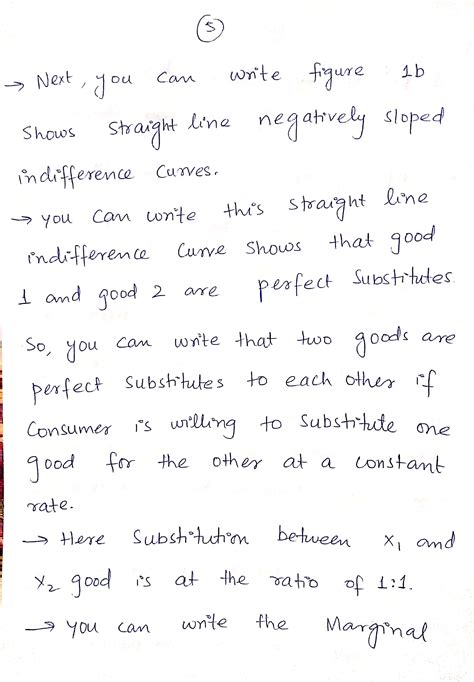 5
→ Next, you can write figure 1b
shows straight line negatively sloped
indifference curves.
→ you can write this straight line
indifference curve shows that good
1 and good 2 are perfect substitutes.
So, you can write that two goods are
perfect substitutes to each other if
consumer is willing to substitute one
good for the other at a constant
rate.
→ Here substitution between x₁ and
x₂ good is at the ratio of 1:1.
→ you can write the Marginal